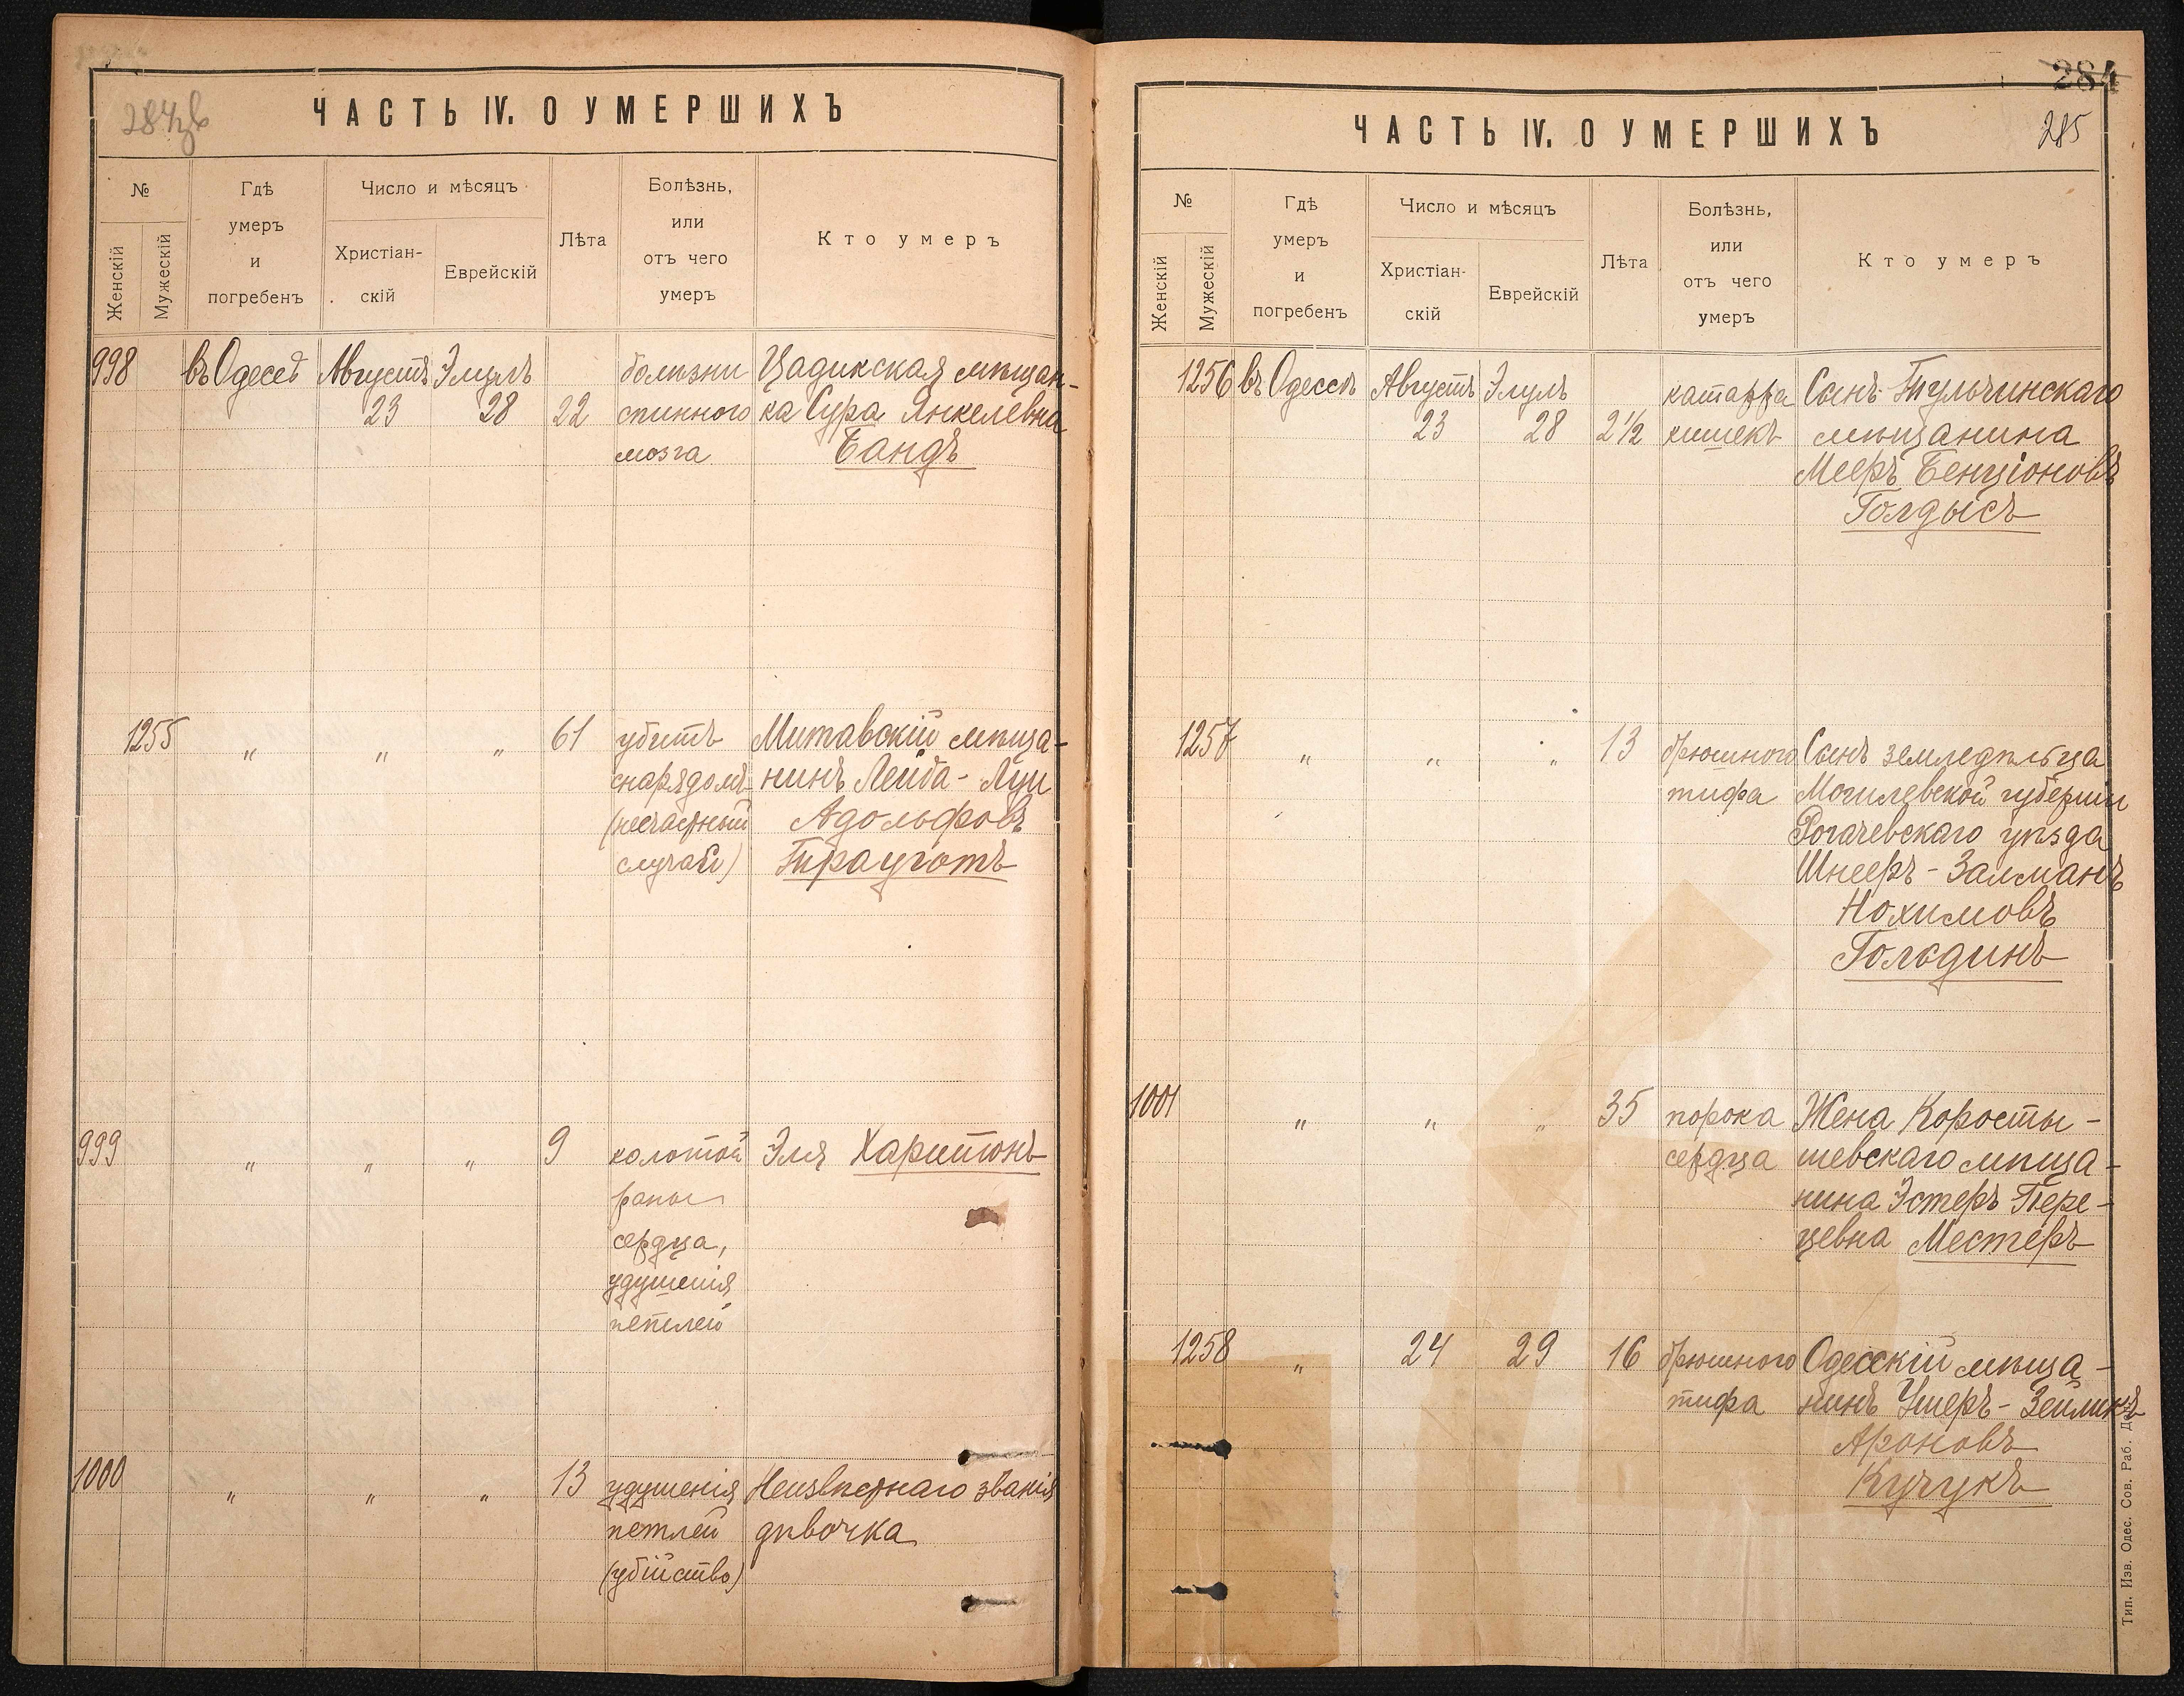 284зв
ЧАСТЬ IV. О УМЕРШИХЪ
№
Женскій
Мужескій
Гдѣ
умеръ
и
погребенъ
Число и мѣсяцъ
Христіан-
скій
Еврейскій
Лѣта
Болѣзнь,
или
отъ чего
умеръ
Кто умеръ
998 въ Одессѣ Августъ Элулъ болѣзни Цадикская мѣщан-
23 28 22 спинного ка Сура Янкелевна
мозга Бандъ
1255 " " " 61 убитъ Митавскій мѣща-
снарядомъ нинъ Лейба-Луи
(несчастный Адольфовъ
случай) Трауготъ
999 " " " 9 колотой Эля Харитонъ
раны
сердца,
удушенія
петлей
1000 " " " 13 удушенія Неизвѣстнаго званія
петлей дѣвочка
(убійство)
284
285
ЧАСТЬ IV. О УМЕРШИХЪ
№
Женскій
Мужескій
Гдѣ
умеръ
и
погребенъ
Число и мѣсяцъ
Христіан-
скій
Еврейскій
Лѣта
Болѣзнь,
или
отъ чего
умеръ
Кто умеръ
1256 въ Одессѣ Августъ Элулъ катарра Сынъ Тульчинскаго
23 28 2½ кишекъ мѣщанина
Мееръ Бенціоновъ
Голдысъ
1257 " " " 13 брюшного Сынъ земледѣльца
тифа Могилевской губерніи
Рогачевскаго уѣзда
Шнееръ-Залманъ
Нохимовъ
Гольдинъ
1001 " " " 35 порока Жена Коросты-
сердца шевскаго мѣща-
нина Эстеръ Пере-
цевна Местеръ
1258 " 24 29 16 брюшного Одесскій мѣща-
тифа нинъ Ушеръ-Зейликъ
Ароновъ
Кучукъ
Тип. Изв. Одес. Сов. Раб. Де